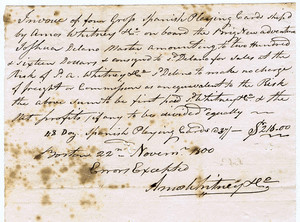 Invoice of four Gross Spanish Playing Cards shipd
by Amos Whitney & Co. on board the Brig New adventure
Joshua Delano Master amounting to two hundred
& Sixteen Dollars & consignd to J Delano for sales at the
Risk of A. Whitney & Co J Delano to make no charge
of freight or Commission as an equivalent to the Risk
the above sum to be first paid A Whitney & Co & the
Net profits if any to be divided equally
48 Doz. Spanish Playing Cards $216.00
Boston 22nd Novemr 1800
Errors Excepted
Amos Whitney & Co